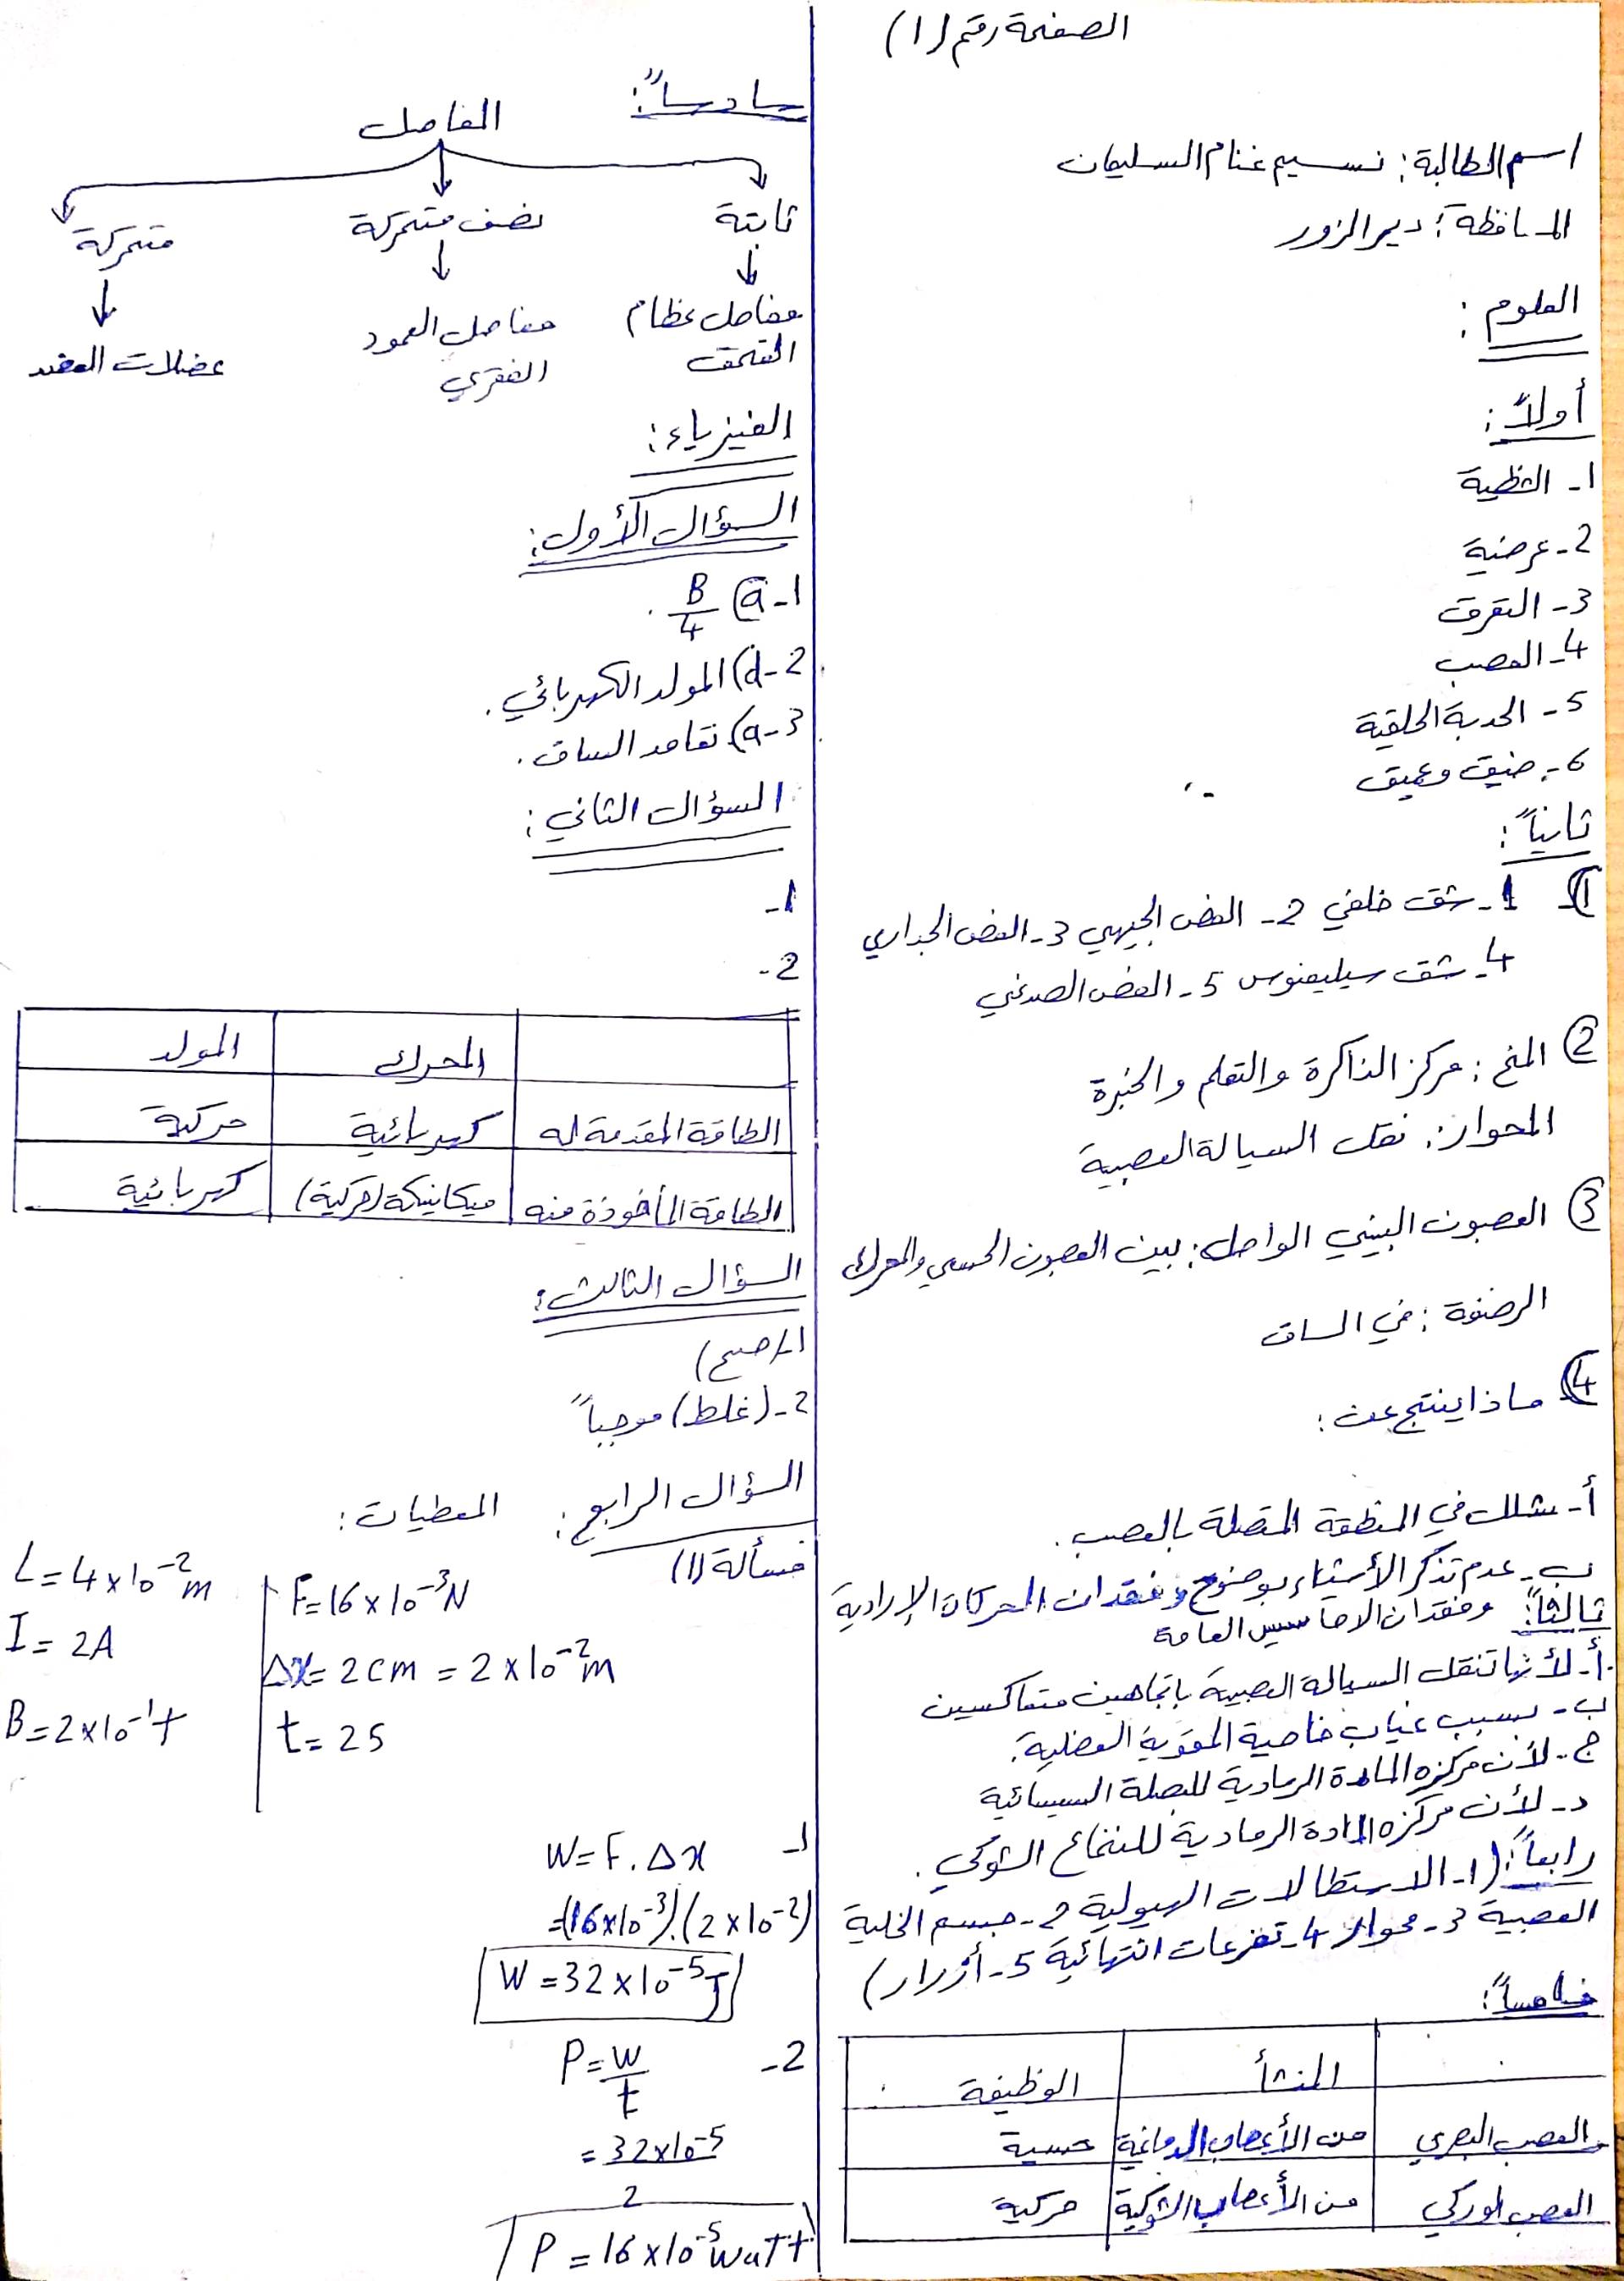 الصفحة رقم (١)
اسم الطالبة: نسيم غنام السليمان
المحافظة: دير الزور
العلوم:
أولاً:
1- الشظية
2- عرضية
3- التعرق
4- العصب
5- الحدبة الحلقية
6- ضيق وعميق
ثانياً:
1) 1- شق خلفي 2- الفص الجبهي 3- الفص الجداري
4- شق سيلفيوس 5- الفص الصدغي
2) المخ: مركز الذاكرة والتعلم والخبرة
المحوار: نقل السيالة العصبية
3) العصبون البيني الواصل: بين العصبون الحسي والمحرك
الرضفة: في الساق
4) ماذا ينتج عن:
أ- شلل في المنطقة المتصلة بالعصب.
ب- عدم تذكر الأشياء بوضوح وفقدان الحركات الإرادية
وفقدان الاحاسيس العامة
ثالثاً:
أ- لأنها تنقل السيالة العصبية باتجاهين متعاكسين
ب- بسبب غياب خاصية المقوية العضلية.
ج- لأن مركزه المادة الرمادية للبصلة السيسائية
د- لأن مركزه المادة الرمادية للنخاع الشوكي.
رابعاً: (1- الاستطالات الهيولية 2- جسم الخلية
العصبية 3- محوار 4- تفرعات انتهائية 5- أزرار)
خامساً:
المنشأ الوظيفة
العصب البصري من الأعصاب الدماغية حسية
العصب الوركي من الأعصاب الشوكية حركية
سادساً:
المفاصل
ثابتة نصف متحركة متحركة
مفاصل عظام القحف
مفاصل العمود الفقري
عضلات العضد
الفيزياء:
السؤال الأول:
1- a) B/4.
2- d) المولد الكهربائي.
3- a) تقاصر الساق.
السؤال الثاني:
1-
2-
المحرك المولد
الطاقة المقدمة له كهربائية حركية
الطاقة المأخوذة منه ميكانيكة (حركية) كهربائية
السؤال الثالث:
1- (صح)
2- (غلط) موجباً
السؤال الرابع: المعطيات:
مسألة (1)
L = 4 × 10⁻² m
I = 2A
B = 2 × 10⁻¹ t
F = 16 × 10⁻³ N
Δx = 2 cm = 2 × 10⁻² m
t = 2s
1- W = F . Δx
= (16 × 10⁻³) . (2 × 10⁻²)
W = 32 × 10⁻⁵ J
2- P = W/t
= 32 × 10⁻⁵ / 2
P = 16 × 10⁻⁵ WaTt